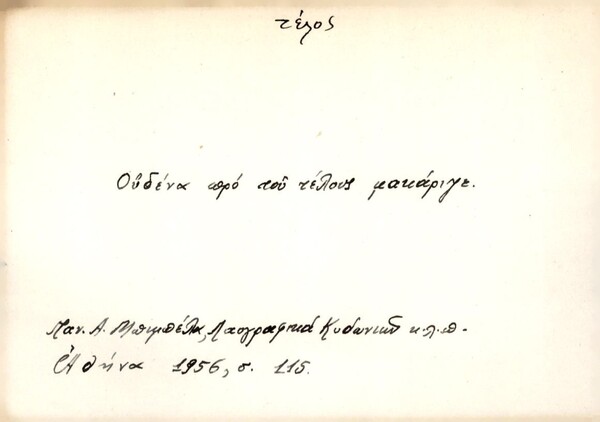 τέλος
Οὐδένα πρό τοῦ τέλους μακάριζε.
Παν. Α. Μπιμπέλα, Λαογραφικά Κυδωνιῶν κ.λ.π.
Ἀθήνα 1956, σ. 115.